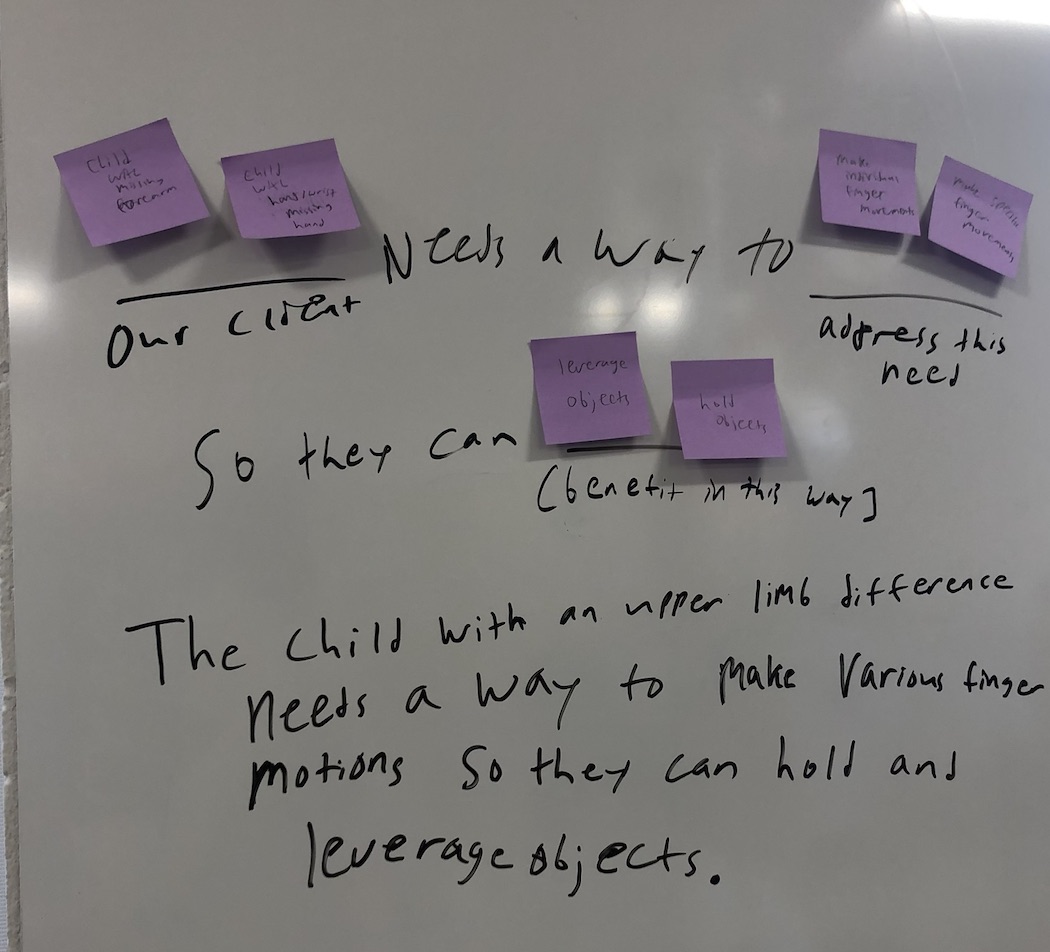 Child
with
missing
forearm
Child
with
hand/wrist
missing
hand
Needs a way to
make
individual
finger
movements
make specific
finger
movements
Our client
address this
need
So they can
leverage
objects
hold
objects
(benefit in this way]
The child with an upper limb difference
needs a way to make various finger
motions so they can hold and
leverage objects.